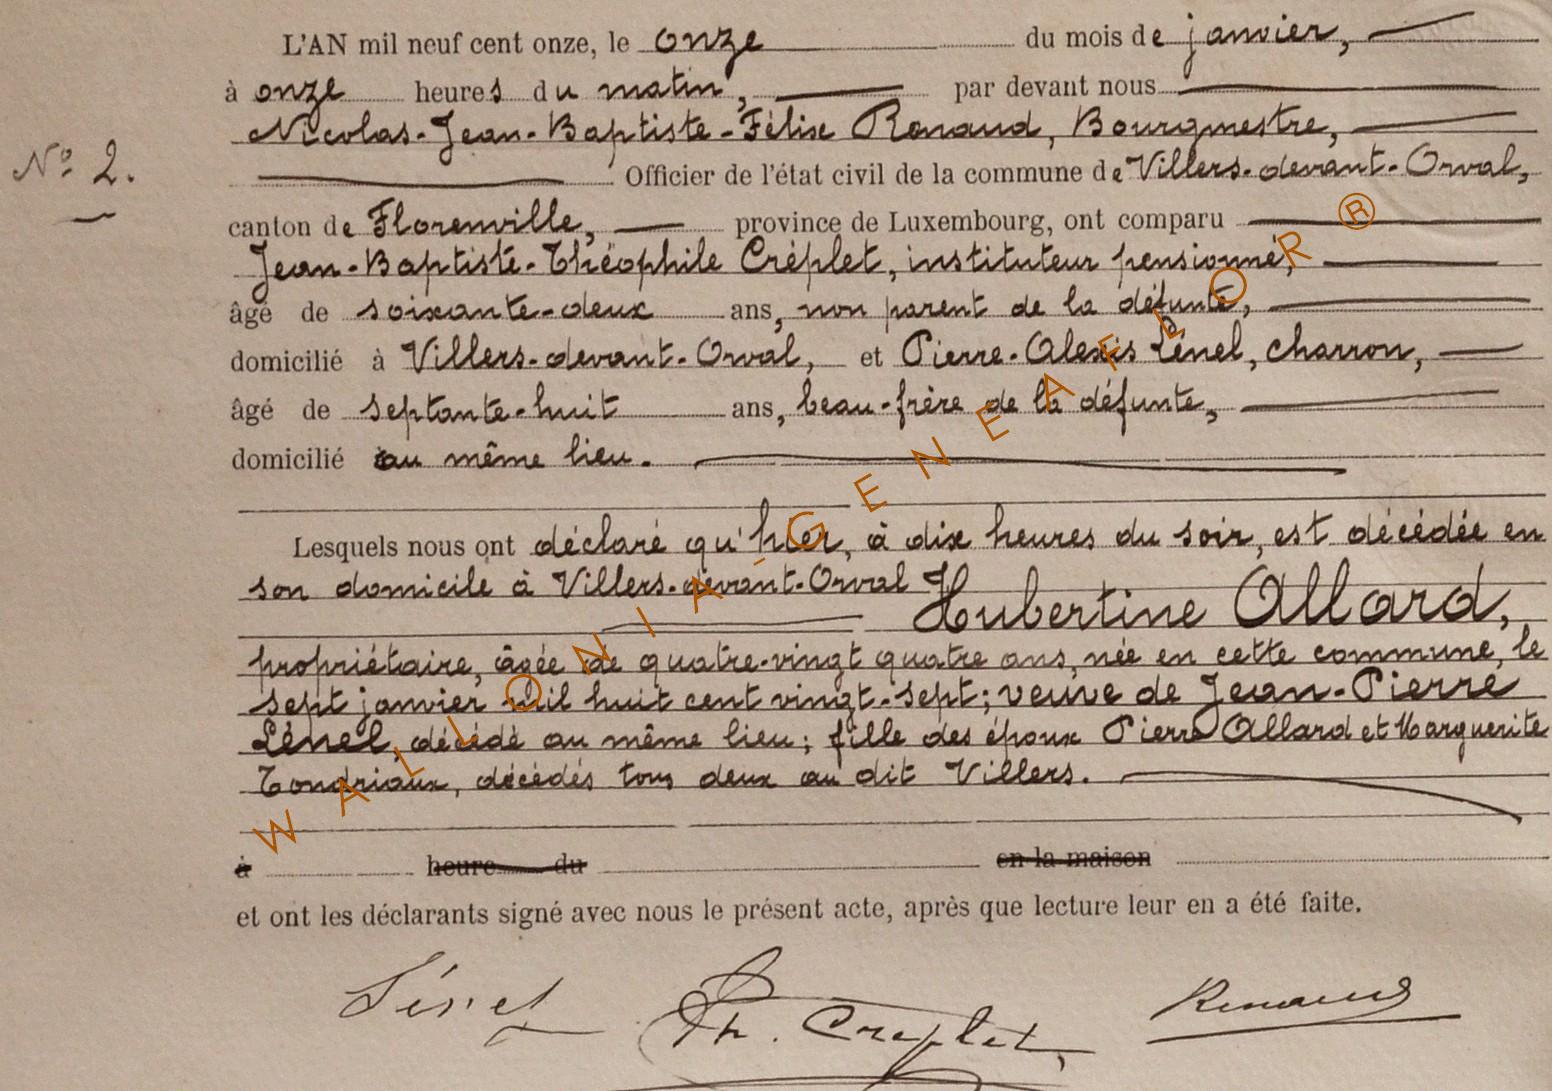 L'AN mil neuf cent onze, le onze du mois de janvier,
à onze heures du matin, par devant nous
Nicolas-Jean-Baptiste-Félix Renaud, Bourgmestre,
N° 2.
Officier de l'état civil de la commune de Villers-devant-Orval,
canton de Florenville, province de Luxembourg, ont comparu
Jean-Baptiste-Théophile Créplet, instituteur pensionné,
âgé de soixante-deux ans, non parent de la défunte,
domicilié à Villers-devant-Orval, et Pierre-Alexis Lénel, charron,
âgé de septante-huit ans, beau-frère de la défunte,
domicilié au même lieu.
Lesquels nous ont déclaré qu'hier, à dix heures du soir, est décédée en
son domicile à Villers-devant-Orval
Hubertine Allard,
propriétaire, âgée de quatre-vingt quatre ans, née en cette commune, le
sept janvier mil huit cent vingt-sept; veuve de Jean-Pierre
Lénel, décédé au même lieu; fille des époux Pierre Allard et Marguerite
Tondriaux, décédés tous deux au dit Villers.
à heure du en la maison
et ont les déclarants signé avec nous le présent acte, après que lecture leur en a été faite.
Lénel Th. Créplet, Renaud
WALLONIA-GENEAFLOR ®